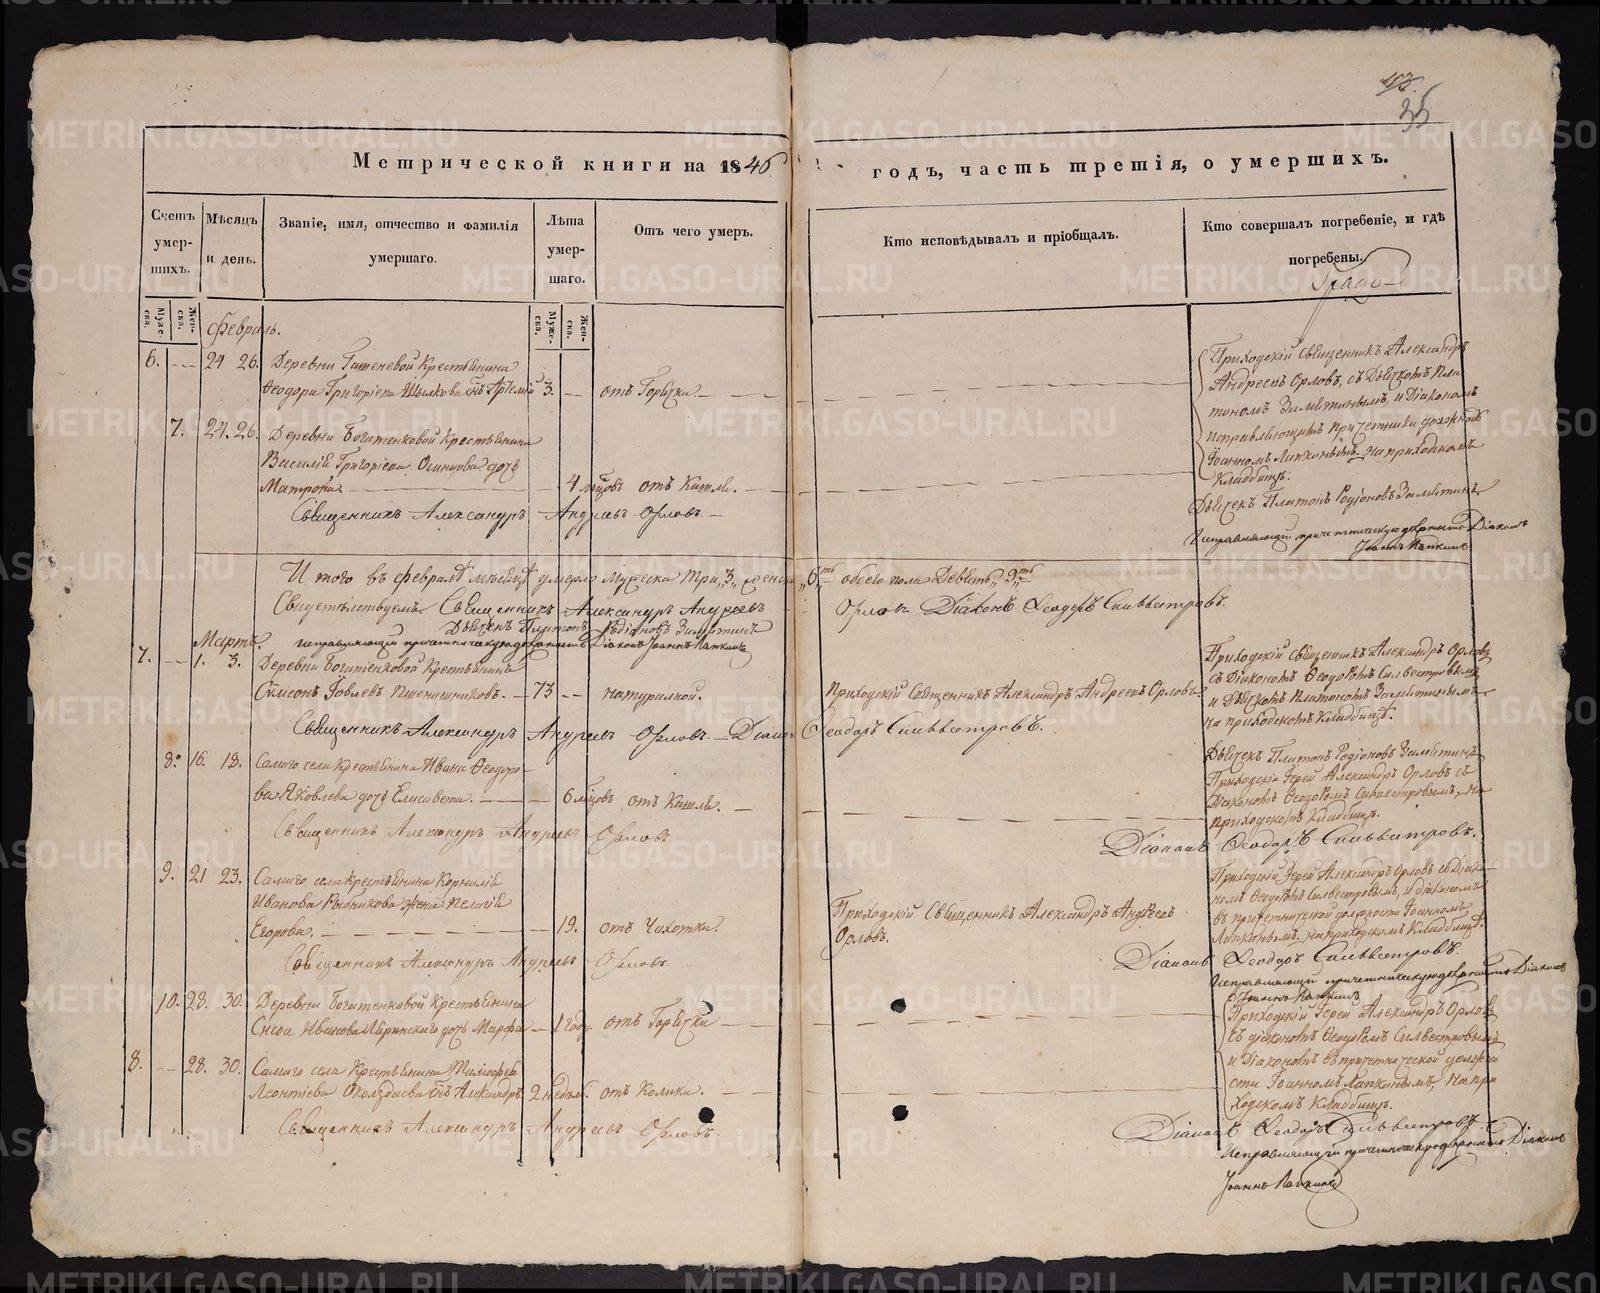 43.
35
Метрической книги на 1846
годъ, часть третія, о умершихъ.
Счетъ умер-шихъ.
Мѣсяцъ и день.
Званіе, имя, отчество и фамилія умершаго.
Лѣта умер-шаго.
Отъ чего умеръ.
Кто исповѣдывалъ и пріобщалъ.
Кто совершалъ погребеніе, и гдѣ погребены.
Муже-ска.
Жен-ска.
Муже-ска.
Жен-ска.
Февраль.
6. 24 26. Деревни Крестьянина
Ѳеодора Григоріева сынъ Артемій 3. отъ Горячки
Приходскій священникъ Александръ
Андреевъ Орловъ, съ Дьячкомъ Пла
тономъ и Діакономъ
исправляющимъ причетника должность
Іоанномъ на приходскомъ
Кладбищѣ.
7. 24. 26. Деревни Богатенковой Крестьянина
Василія Григоріева дочь
Матрона 4 мѣсцовъ отъ Кашля.
Священникъ Александръ Андреевъ Орловъ.
Дьячекъ Платонъ Родіоновъ
Исправляющій причетническую должность Діаконъ
Іоаннъ
Итого въ февралѣ мѣсяцѣ умерло мужеска три, 3, женска 6ть обоего пола девять, 9ть
Свидетельствуемъ Священникъ Александръ Андреевъ Орловъ Діаконъ Ѳеодоръ Сильвестровъ.
Дьячекъ Платонъ Родіоновъ
исправляющій причетническую должность Діаконъ Іоаннъ
Мартъ.
7. 1. 3. Деревни Богатенковой Крестьянинъ
Сѵмеонъ Іовлевъ Пшенишниковъ. 73 натуральной.
Приходскій Священникъ Александръ Андреевъ Орловъ
Приходскій священникъ Александръ Орловъ
съ Діакономъ Ѳеодоромъ Сильвестровымъ
и Дьячкомъ Платономъ
на приходскомъ Кладбищѣ.
Священникъ Александръ Андреевъ Орловъ. Діаконъ Ѳеодоръ Сильвестровъ.
Дьячекъ Платонъ Родіоновъ
8. 16. 18. Самаго села Крестьянина Ивана Ѳеодоро-
ва Яковлева дочь Елисавета. 6 мѣсцовъ отъ Кашля.
Приходскій Іерей Александръ Орловъ съ
Діакономъ Ѳеодоромъ Сильвестровымъ, на
приходскомъ Кладбищѣ.
Священникъ Александръ Андреевъ Орловъ
Діаконъ Ѳеодоръ Сильвестровъ.
9. 21 23. Самаго села Крестьянина Корнилія
Иванова Рыбникова жена Пелагія
Егорова. 19. отъ Чахотки.
Приходскій Священникъ Александръ Андреевъ
Орловъ.
Приходскій Іерей Александръ Орловъ съ Діако-
номъ Ѳеодоромъ Сильвестровымъ, и діакономъ
въ причетнической должности Іоанномъ
на приходскомъ Кладбищѣ.
Священникъ Александръ Андреевъ Орловъ
Діаконъ Ѳеодоръ Сильвестровъ.
Исправляющій причетническую должность Діаконъ
Іоаннъ
10. 28. 30. Деревни Богатенковой Крестьянина
Иванова дочь Марфа 1 году. отъ Горячки
Приходскій Іерей Александръ Орловъ
съ діакономъ Ѳеодоромъ Сильвестровымъ
и Діакономъ въ причетнической должно
сти Іоанномъ на при
ходскомъ Кладбищѣ.
8. 28. 30. Самаго села Крестьянина Тимофея
Леонтіева сынъ Александръ 2 недѣль. отъ Колики.
Священникъ Александръ Андреевъ Орловъ.
Діаконъ Ѳеодоръ Сильвестровъ.
Исправляющій причетническую должность Діаконъ
Іоаннъ
METRIKI.GASO-URAL.RU